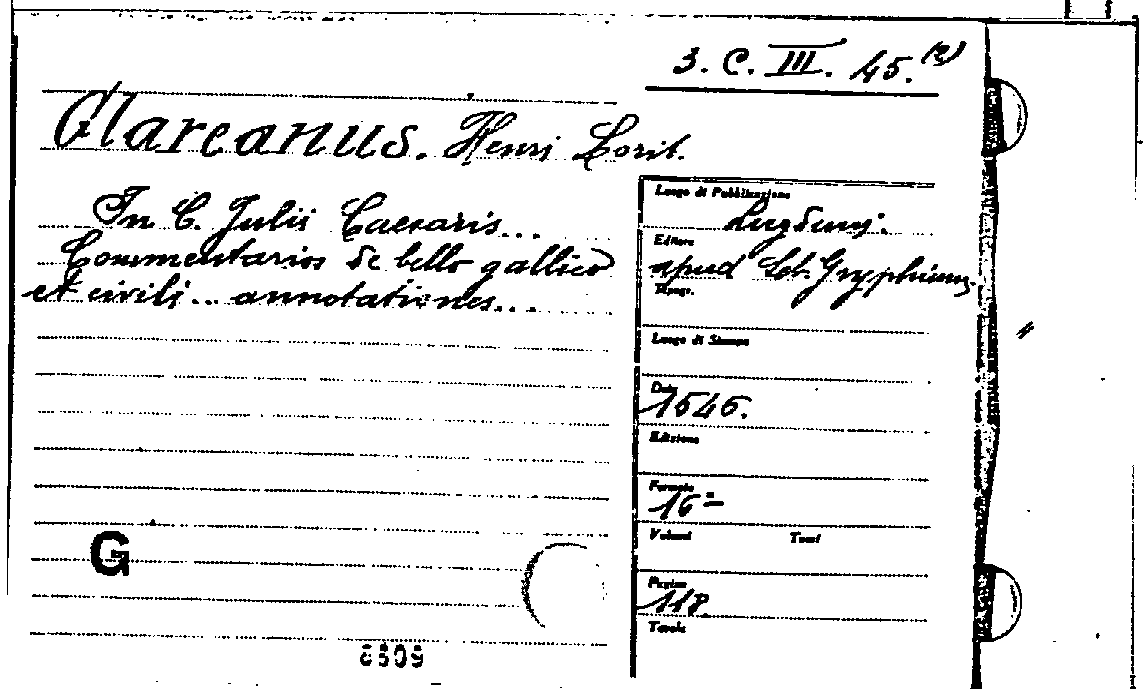 3. C. III. 45. (2)
Glareanus. Henri Lorit.
In C. Julii Caesaris...
Commentarios de bello gallico
et civili... annotationes...
Luogo di Pubblicazione
Lugduni.
Editore
apud Seb. Gryphium.
Luogo di Stampa
Data
1545.
Edizione
Formato
16°
Volumi Tomi
Pagine
118.
Tavole
G